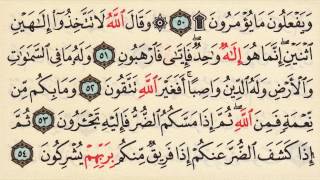 وَيَفْعَلُونَ مَا يُؤْمَرُونَ ۩ ٥٠ ۞ وَقَالَ ٱللَّهُ لَا تَتَّخِذُوٓا۟ إِلَٰهَيْنِ
ٱثْنَيْنِ ۖ إِنَّمَا هُوَ إِلَٰهٌ وَٰحِدٌ ۖ فَإِيَّٰىَ فَٱرْهَبُونِ ٥١ وَلَهُۥ مَا فِى ٱلسَّمَٰوَٰتِ
وَٱلْأَرْضِ وَلَهُ ٱلدِّينُ وَاصِبًا ۚ أَفَغَيْرَ ٱللَّهِ تَتَّقُونَ ٥٢ وَمَا بِكُم مِّن
نِّعْمَةٍ فَمِنَ ٱللَّهِ ۖ ثُمَّ إِذَا مَسَّكُمُ ٱلضُّرُّ فَإِلَيْهِ تَجْـَٔرُونَ ٥٣ ثُمَّ
إِذَا كَشَفَ ٱلضُّرَّ عَنكُمْ إِذَا فَرِيقٌ مِّنكُم بِرَبِّهِمْ يُشْرِكُونَ ٥٤